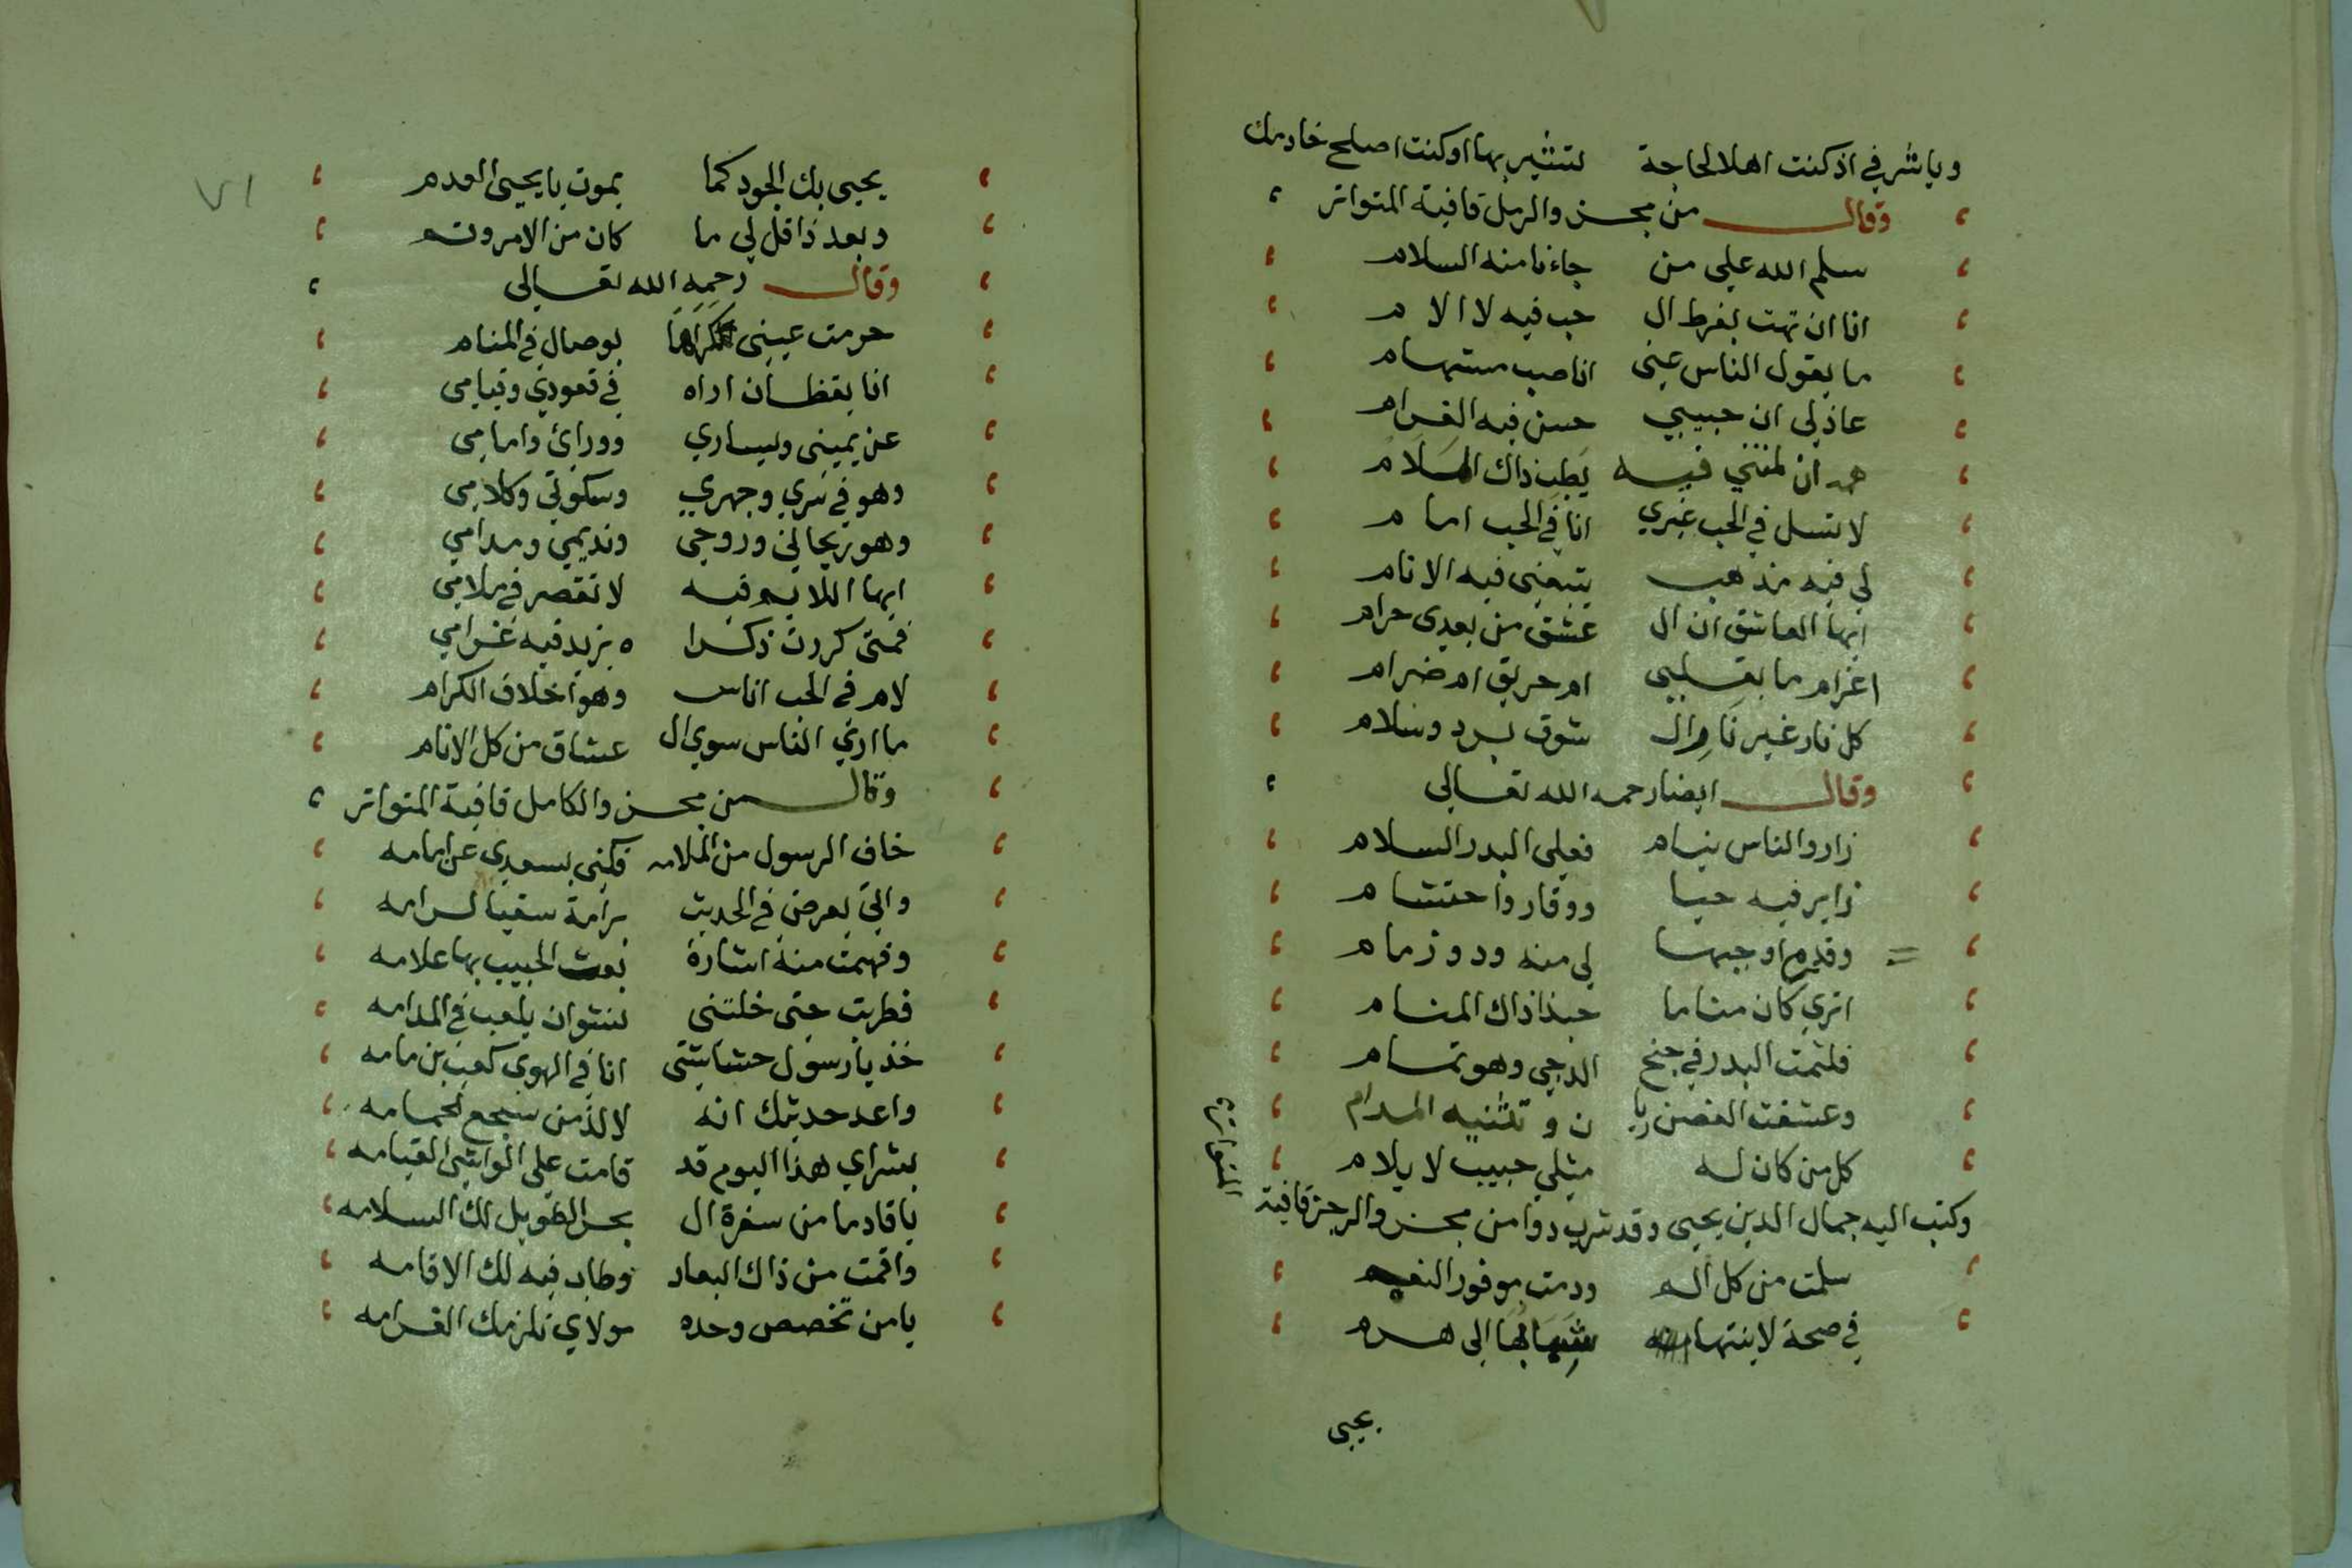 وياشرفي اذ كنت اهلا لحاجة لتشير بها او كنت اصلح خادمك
وقال من مجزو الرمل قافية المتواتر
سلم الله علي من جاءنا منه السلام
انا ان تهت بفرط ال حب فيه لا الام
ما يقول الناس عني انا صب مستهام
عاذلي ان حبيبي حسن فيه الغرام
ان لمتني فيه يطب ذاك الملام
لا تسل في الحب غيري انا في الحب امام
لي فيه مذهب يتبعني فيه الانام
ايها العاشق ان ال عشق من بعدي حرام
اغرام ما بقلبي ام حريق ام ضرام
كل نار غير نار ال شوق برد وسلام
وقال ايضا رحمه الله تعالي
زار والناس نيام فعلي البدر السلام
زاير فيه حيا ووقار واحتشام
وقديم اوجبها لي منه ود وزمام
اتري كان مناما حبذا ذاك المنام
فلثمت البدر في جنح الدجي وهو تمام
وعشقت الغصن ريا ن و تثنيه المدام
كل من كان له مثلي حبيب لا يلام
وكتب اليه جمال الدين يحيى وقد شرب دوا من مجزو الرجز قافية
المتواتر
سلمت من كل الم ودمت موفور النعم
في صحة لا ينتهي شبابها الى هرم
يحيى
٧١
يحيى بك الجود كما يموت يا يحيى العدم
وبعد ذا قل لي ما كان من الامر وتم
وقال رحمه الله تعالى
حرمت عيني كراها بوصال في المنام
انا يقظان اراه في قعودي وقيامي
عن يميني ويساري وورائ وامامي
وهو في سري وجهري وسكوتي وكلامي
وهو ريحاني وروحي ونديمي ومدامي
ايها اللايم فيه لا تقصر في ملامي
فمتى كررت ذكرا ه يزيد فيه غرامي
لام في الحب اناس وهو اخلاق الكرام
ما اري الناس سوي ال عشاق من كل الانام
وقال من مجزو الكامل قافية المتواتر
خاف الرسول من الملامه فكنى بسعدي عن امامه
واتي يعرض في الحديث برامة سقيا لرامه
وفهمت منه اشارة بعث الحبيب بها علامه
فطربت حتى خلتني نشوان يلعب في المدامه
خذ يا رسول حشاشتي انا في الهوى كعب بن مامه
واعد حديثك انه لالذ من سجع الحمامه
بشراي هذا اليوم قد قامت علي الواشي القيامه
يا قادما من سفرة ال بحر الطويل لك السلامه
واقمت من ذاك البعاد وطاب فيه لك الاقامه
يا من تخصص وحده مولاي تلزمك الغرامه